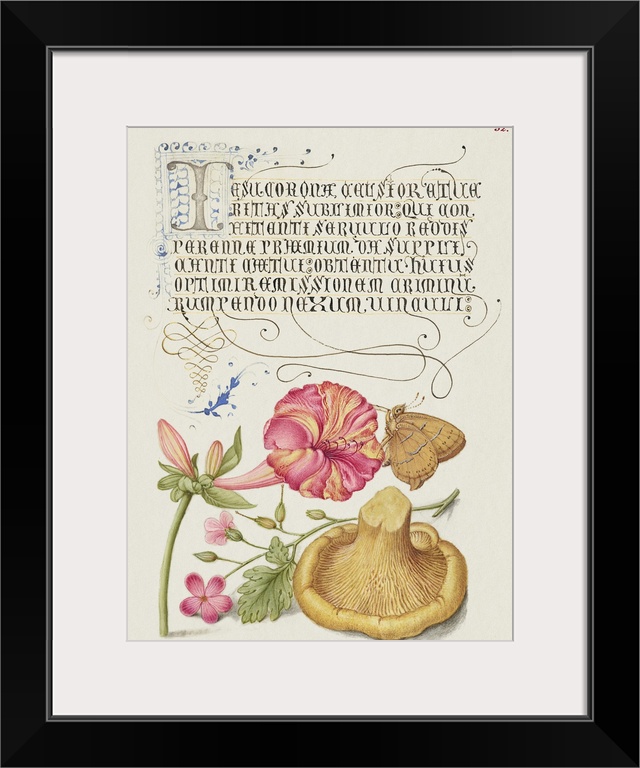 32.
IESU CORONA CELSIOR ET VE
RITAS SUBLIMIOR: QUI CON
FITENTI SERVULO REDDIS
PERENNE PRÆMIUM. DA SUPPLI
CANTI CŒTUI: OBTENTU HUIUS
OPTIMI REMISSIONEM CRIMINU
RUMPENDO NEXUM VINCULI: